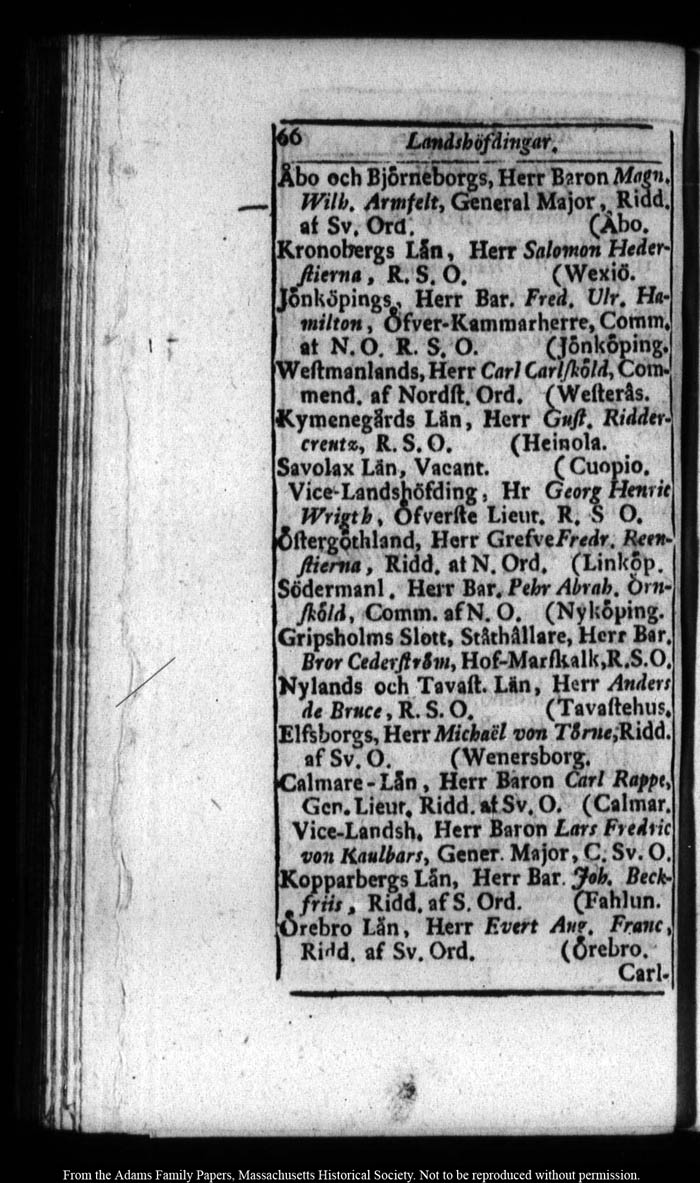 66 Landshöfdingar.
Åbo och Björneborgs, Herr Baron Magn.
Wilh. Armfelt, General Major, Ridd.
af Sv. Ord. (Åbo.
Kronobergs Lån, Herr Salomon Heder-
ſtierna, R. S. O. (Wexiö.
Jönköpings, Herr Bar. Fred. Ulr. Ha-
milton, Öfver-Kammarherre, Comm.
at N. O. R. S. O. (Jönköping.
Weſtmanlands, Herr Carl Carlſköld, Com-
mend. af Nordſt. Ord. (Weſterås.
Kymenegårds Län, Herr Guſt. Ridder-
creutz, R. S. O. (Heinola.
Savolax Län, Vacant. (Cuopio.
Vice-Landshöfding, Hr Georg Henric
Wrigth, Öfverſte Lieut. R. S O.
Öſtergöthland, Herr Grefve Fredr. Reen-
ſtierna, Ridd. at N. Ord. (Linköp.
Södermanl. Herr Bar. Pehr Abrah. Örn-
ſköld, Comm. af N. O. (Nyköping.
Gripsholms Slott, Ståthållare, Herr Bar.
Bror Cederſtröm, Hof-Marſkalk, R. S. O.
Nylands och Tavaſt. Län, Herr Anders
de Bruce, R. S. O. (Tavaſtehus.
Elfsborgs, Herr Michaël von Törne, Ridd.
af Sv. O. (Wenersborg.
Calmare-Lån, Herr Baron Carl Rappe,
Gen. Lieut. Ridd. af Sv. O. (Calmar.
Vice-Landsh. Herr Baron Lars Fredric
von Kaulbars, Gener. Major, C. Sv. O.
Kopparbergs Lån, Herr Bar. Joh. Beck-
friis, Ridd. af S. Ord. (Fahlun.
Örebro Län, Herr Evert Aug. Franc,
Ridd. af Sv. Ord. (Örebro.
Carl-
From the Adams Family Papers, Massachusetts Historical Society. Not to be reproduced without permission.